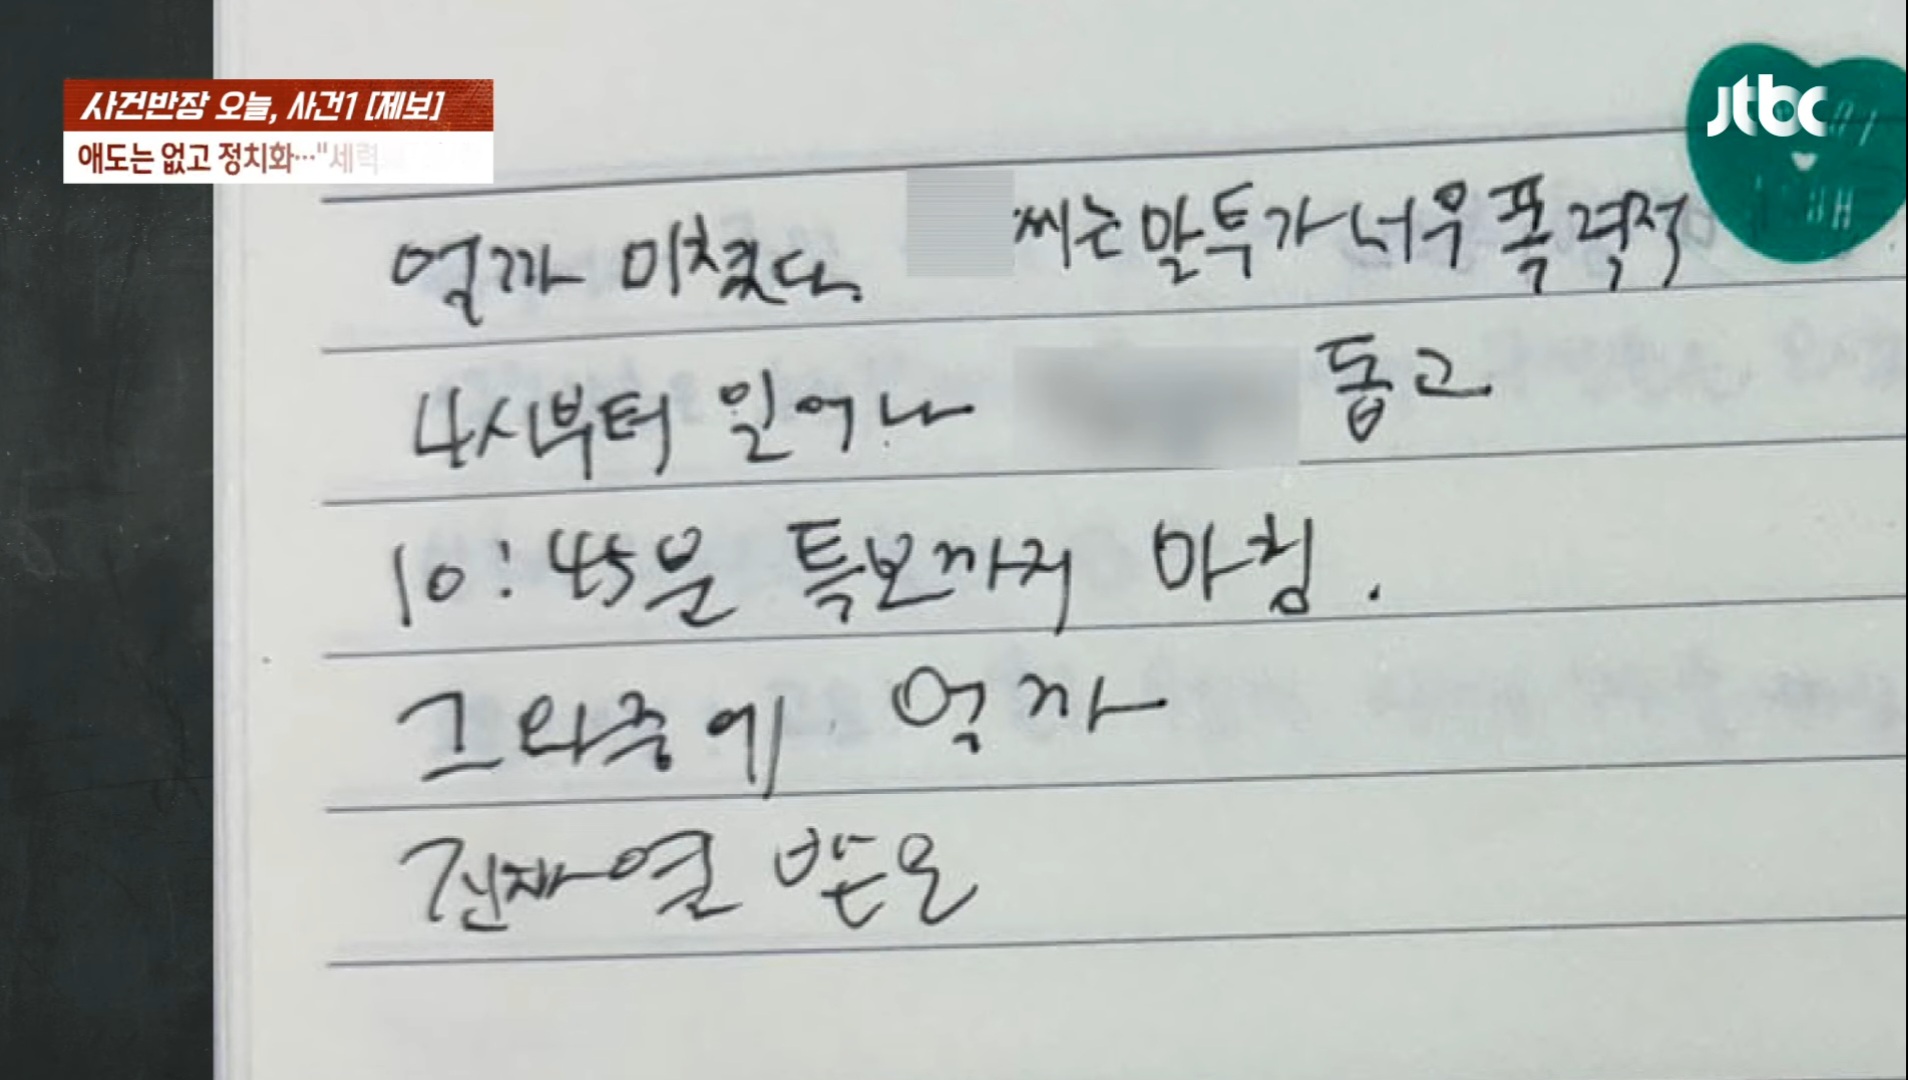 사건반장 오늘, 사건1 [제보]
애도는 없고 정치화…"세력
jtbc
억까 미쳤다. 씨는 말투가 너무 폭력적
4시부터 일어나 돕고
10:45분 특보까지 마침.
그 와중에 억까
진짜 열 받음